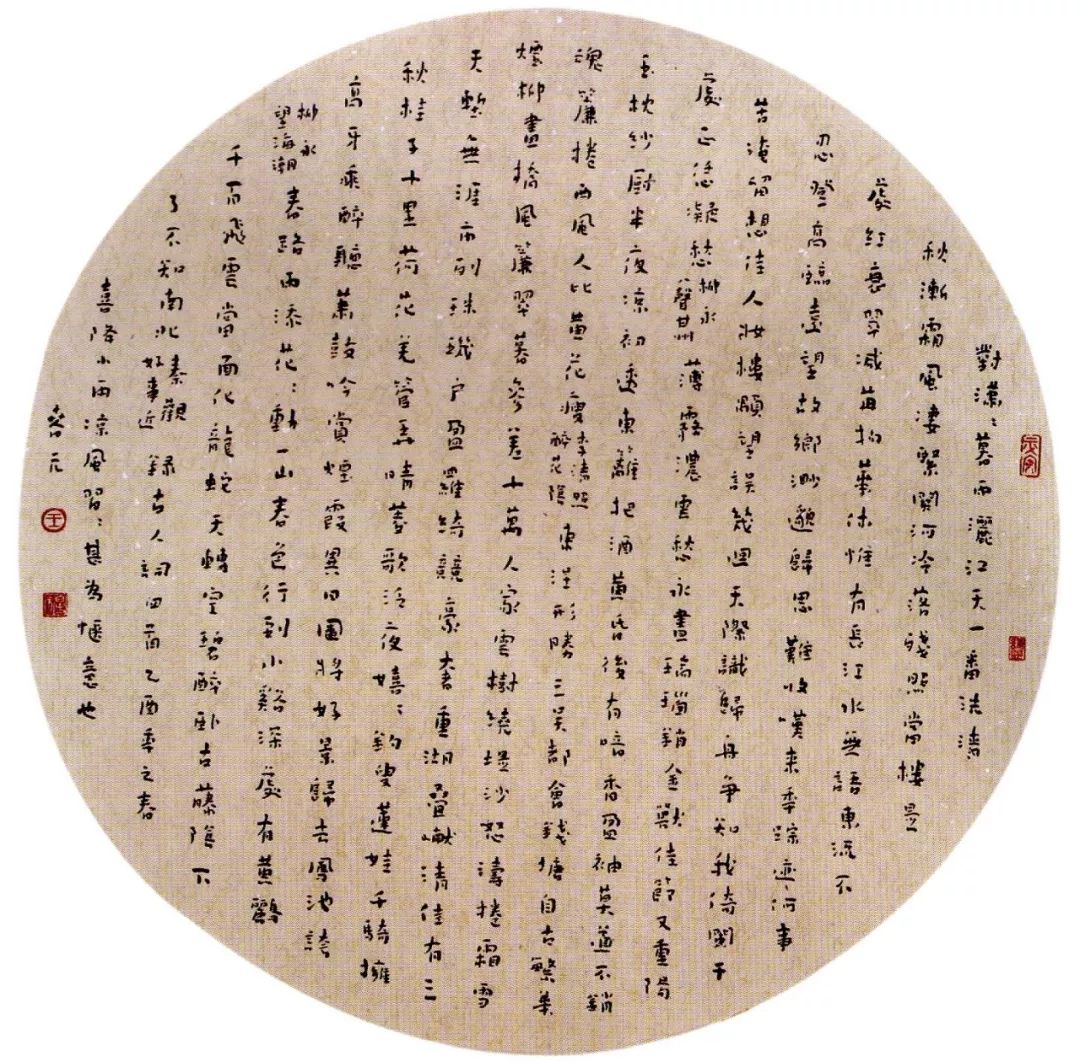 對瀟々暮雨灑江天一番洗清
秋漸霜風淒緊關河冷落殘照當樓是
處紅衰翠減苒物華休惟有長江水無語東流不
忍登高臨遠望故鄉渺邈歸思難收嘆來年踪迹何事
苦淹留想佳人妝樓顒望誤幾回天際識歸舟爭知我倚闌干
處正恁凝愁柳永八聲甘州薄霧濃雲愁永晝瑞腦銷金獸佳節又重陽
玉枕紗厨半夜涼初透東籬把酒黃昏後有暗香盈袖莫道不銷
魂簾捲西風人比黃花瘦李清照醉花陰東南形勝三吳都會錢塘自古繁華
煙柳畫橋風簾翠幕參差十萬人家雲樹繞堤沙怒濤捲霜雪
天塹無涯市列珠璣戶盈羅綺競豪奢重湖疊巘清佳有三
秋桂子十里荷花羌管弄晴菱歌泛夜嬉々釣叟蓮娃千騎擁
高牙乘醉聽簫鼓吟賞煙霞異日圖將好景歸去鳳池誇
柳永望海潮春路雨添花々動一山春色行到小谿深處有黃鸝
千百飛雲當面化龍蛇夭矯空碧醉卧古藤陰下
了不知南北秦觀好事近錄古人詞四首乙酉年之春
喜降小雨涼風習々甚為愜意也
元